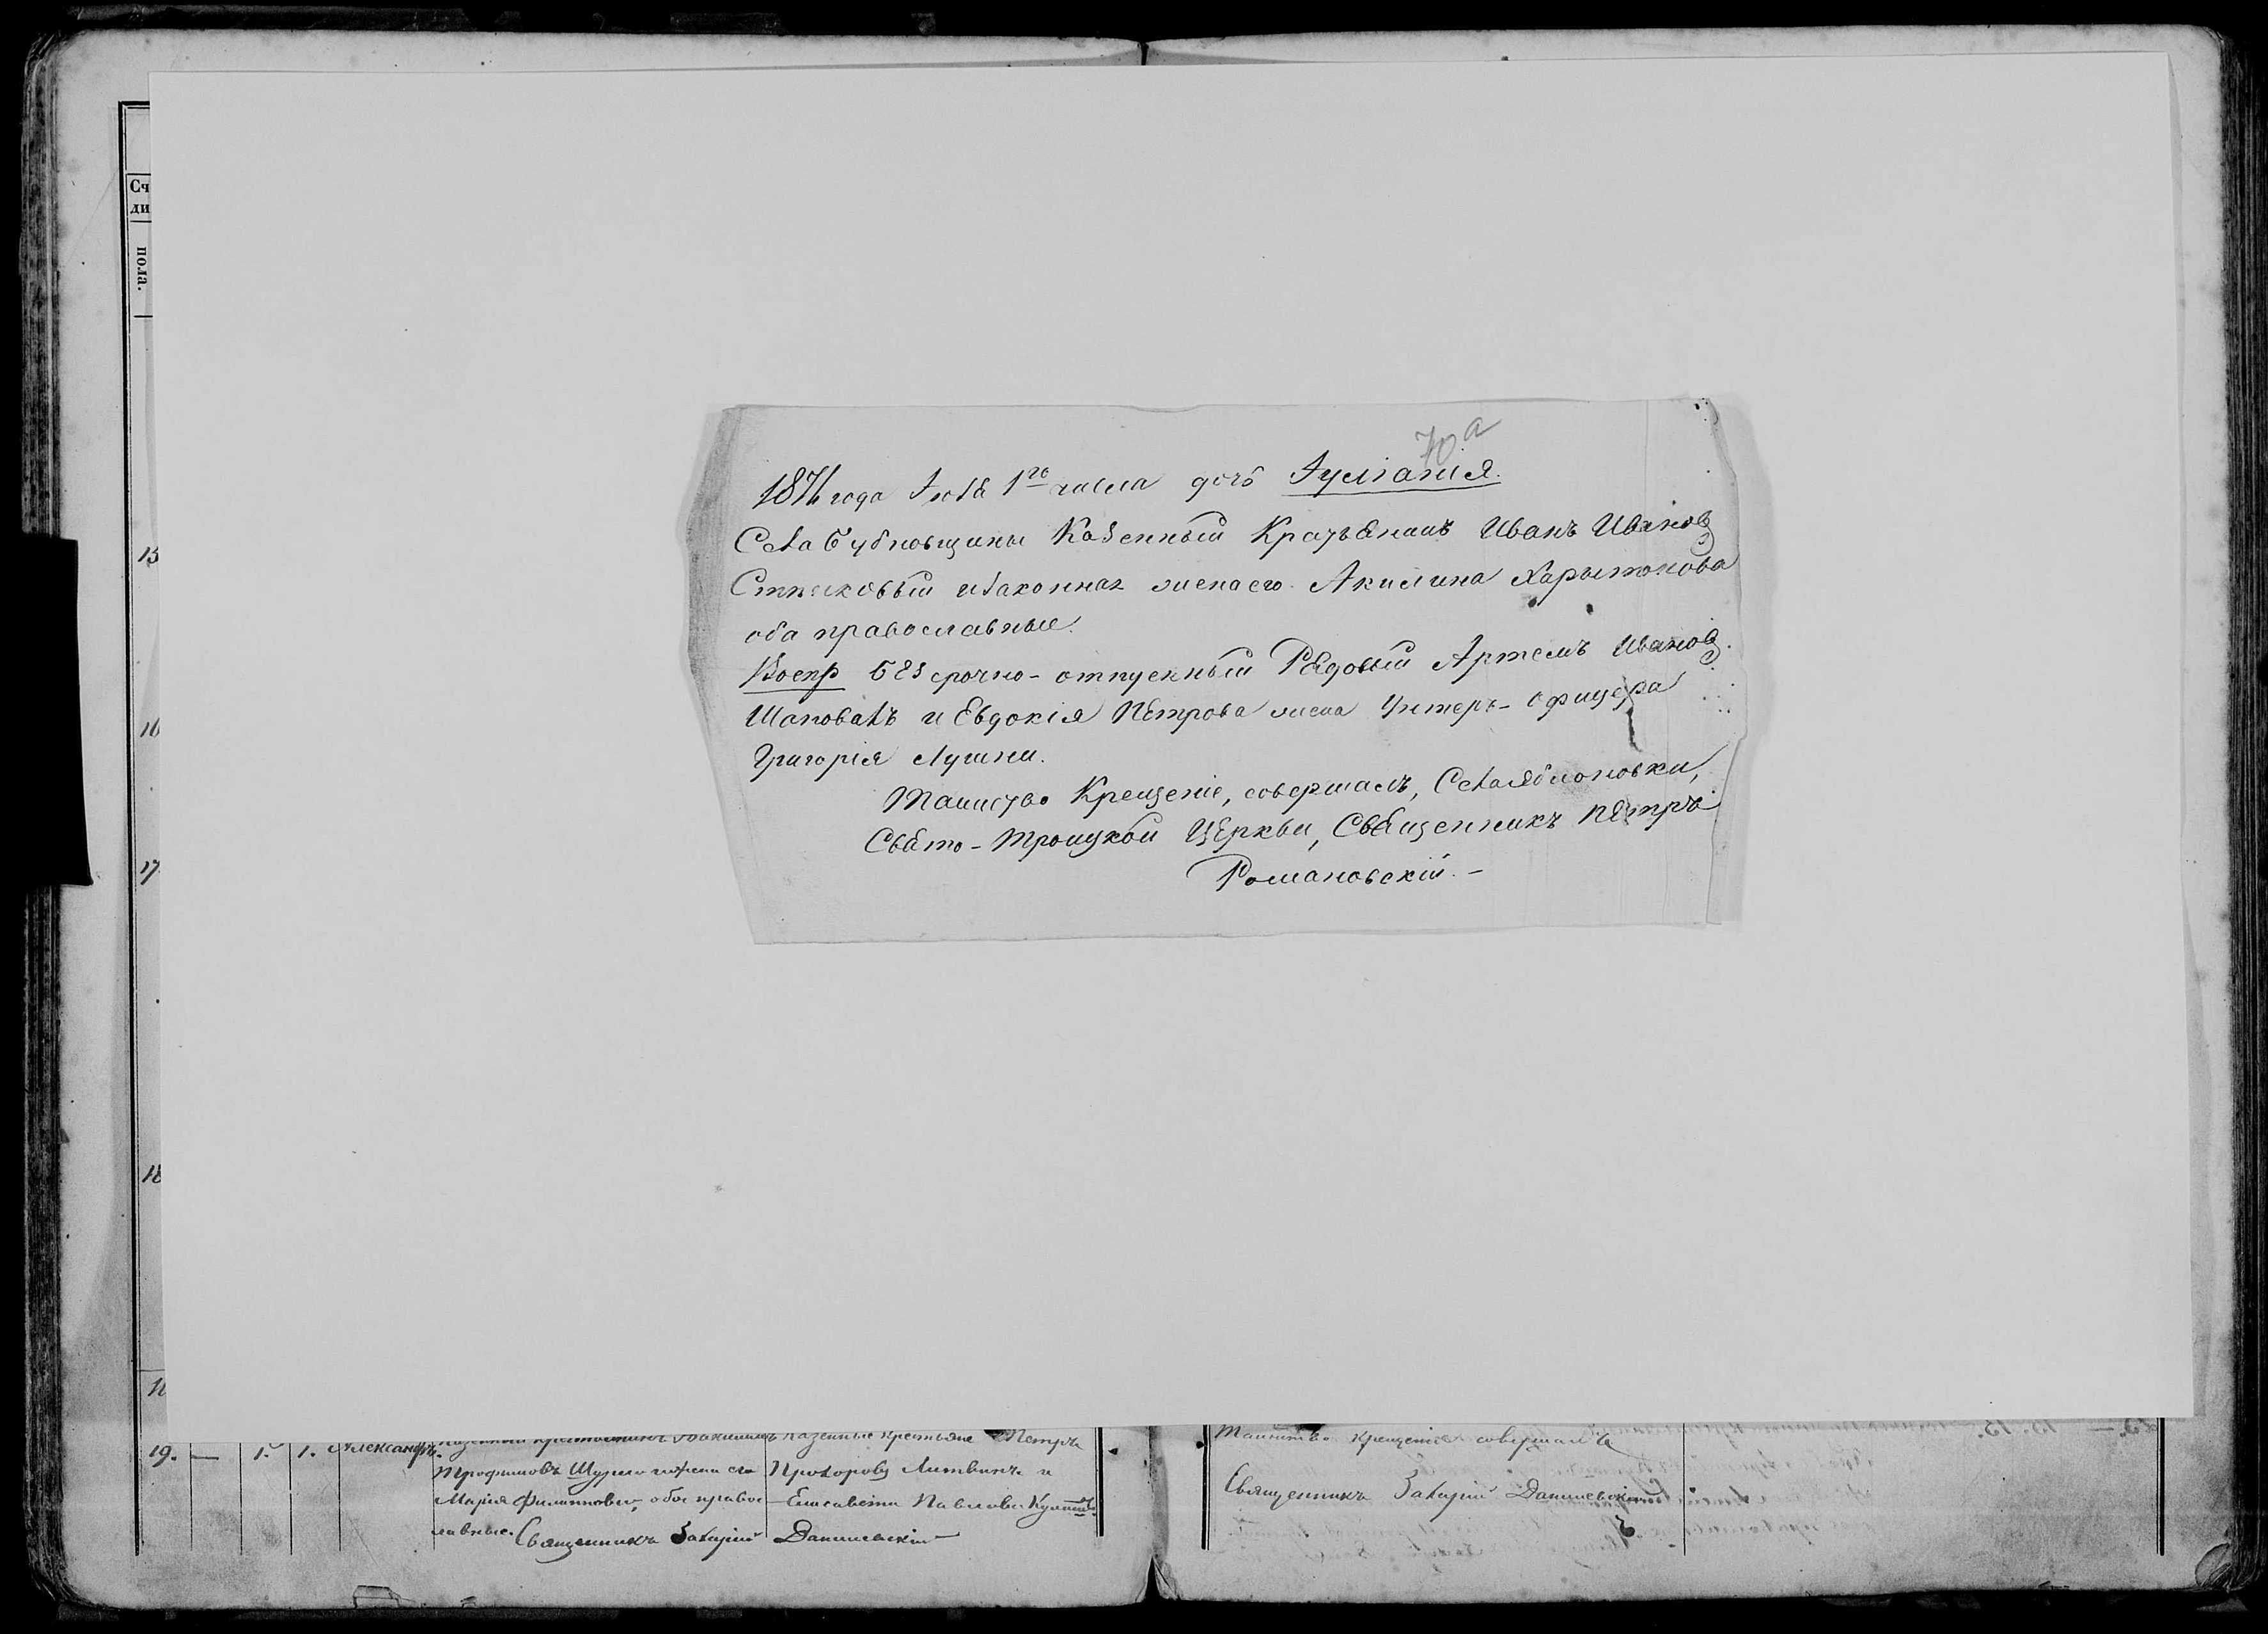 70 а
1871 года Іюля 1го числа дочь Іуліанія.
Села Бубновщины Казенный Кратьянинъ Иванъ Ивановъ
изаконная жена его Акилина Харытонова
оба православные.
Воспр безсрочно-отпускный Рядовый Артемъ Ивановъ
Шаповалъ и Евдокія Петрова жена Унтеръ-офицера
Григорія
Таинство Крещеніе, совершалъ, Села Яблоновки,
Свято-Троицкой Церкви, Священникъ Петръ
Романовскій.-
Сч
ди
пола.
15
16
17
18
19. — 1. 1. Александръ.
казенные крестьяне Петръ
Трофимовъ жена его
Марія Филиппова, обое правос
лавные.
Прохоровъ Литвинъ и
Елисавета Павлова
Священникъ Захарій Данилевскій
Таинство крещенія совершалъ
Священникъ Захарій Данилевскій